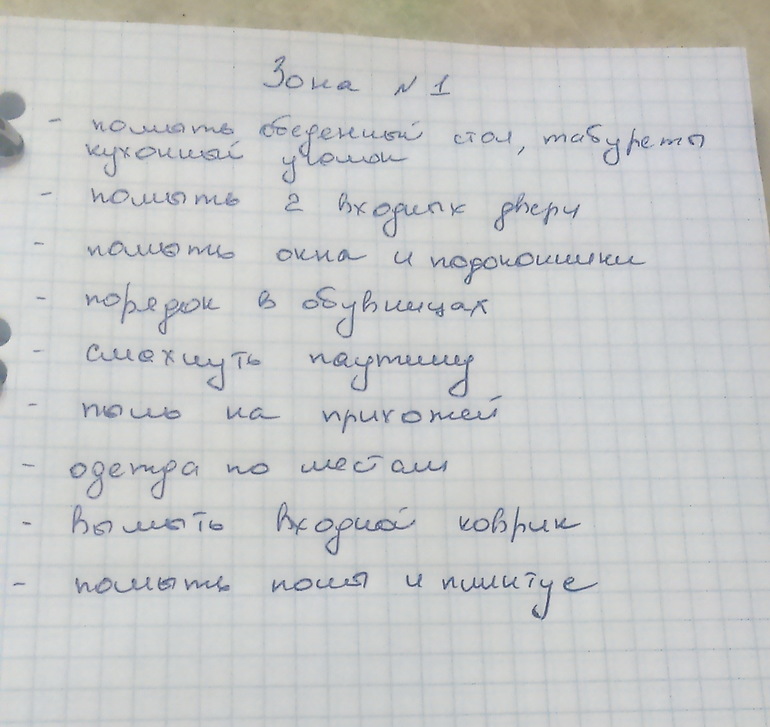 Зона №1
- помыть обеденный стол, табуреты
кухонный уголок
- помыть 2 входных двери
- помыть окна и подоконники
- порядок в обувницах
- смахнуть паутину
- пыль на прихожей
- одежда по местам
- вымыть входной коврик
- помыть полы и плинтус